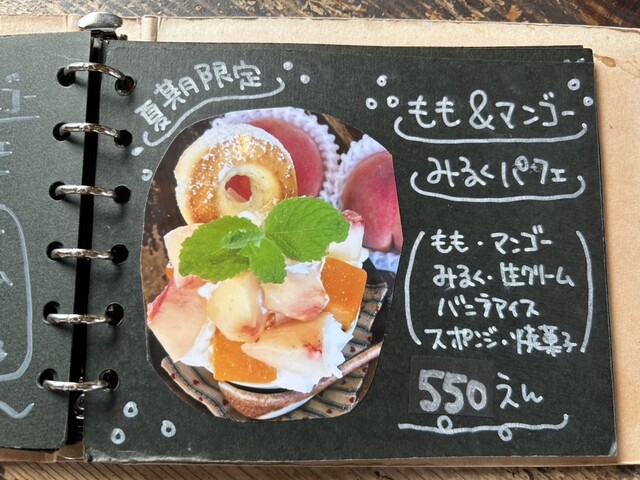 夏期限定
もも&マンゴー
みるくパフェ
もも・マンゴー
みるく・生クリーム
バニラアイス
スポンジ・焼菓子
550えん